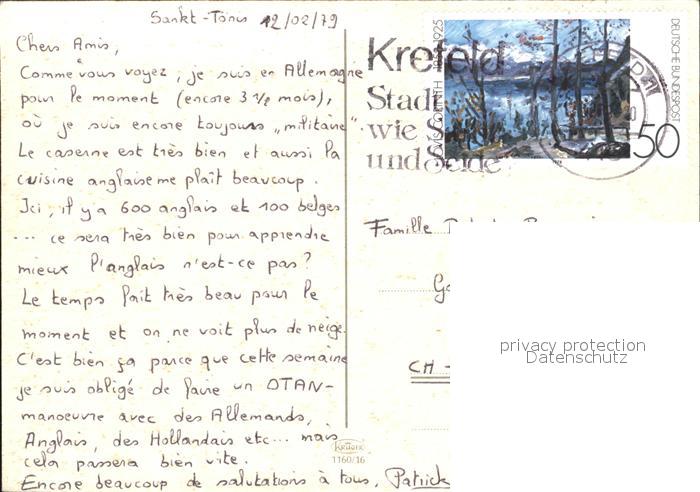 Sankt-Tönis 12/02/79
Chers Amis,
Comme vous voyez, je suis en Allemagne
pour le moment (encore 3 1/2 mois),
où je suis encore toujours „militaire"
Le caserne est très bien et aussi la
cuisine anglaise me plaît beaucoup.
Ici, il y a 600 anglais et 100 belges
... ce sera très bien pour apprendre
mieux l'anglais n'est-ce pas?
Le temps fait très beau pour le
moment et on ne voit plus de neige.
C'est bien ça parce que cette semaine
je suis obligé de faire un OTAN-
manoeuvre avec des Allemands,
Anglais, des Hollandais etc... mais
cela passera bien vite.
Encore beaucoup de salutations à tous, Patrick
KRÜGER
1160/16
Krefeld
Stadt
wie S
und Seide
LOVIS CORINTH 1925
DEUTSCHE BUNDESPOST
50
Famille
CH -
privacy protection
Datenschutz